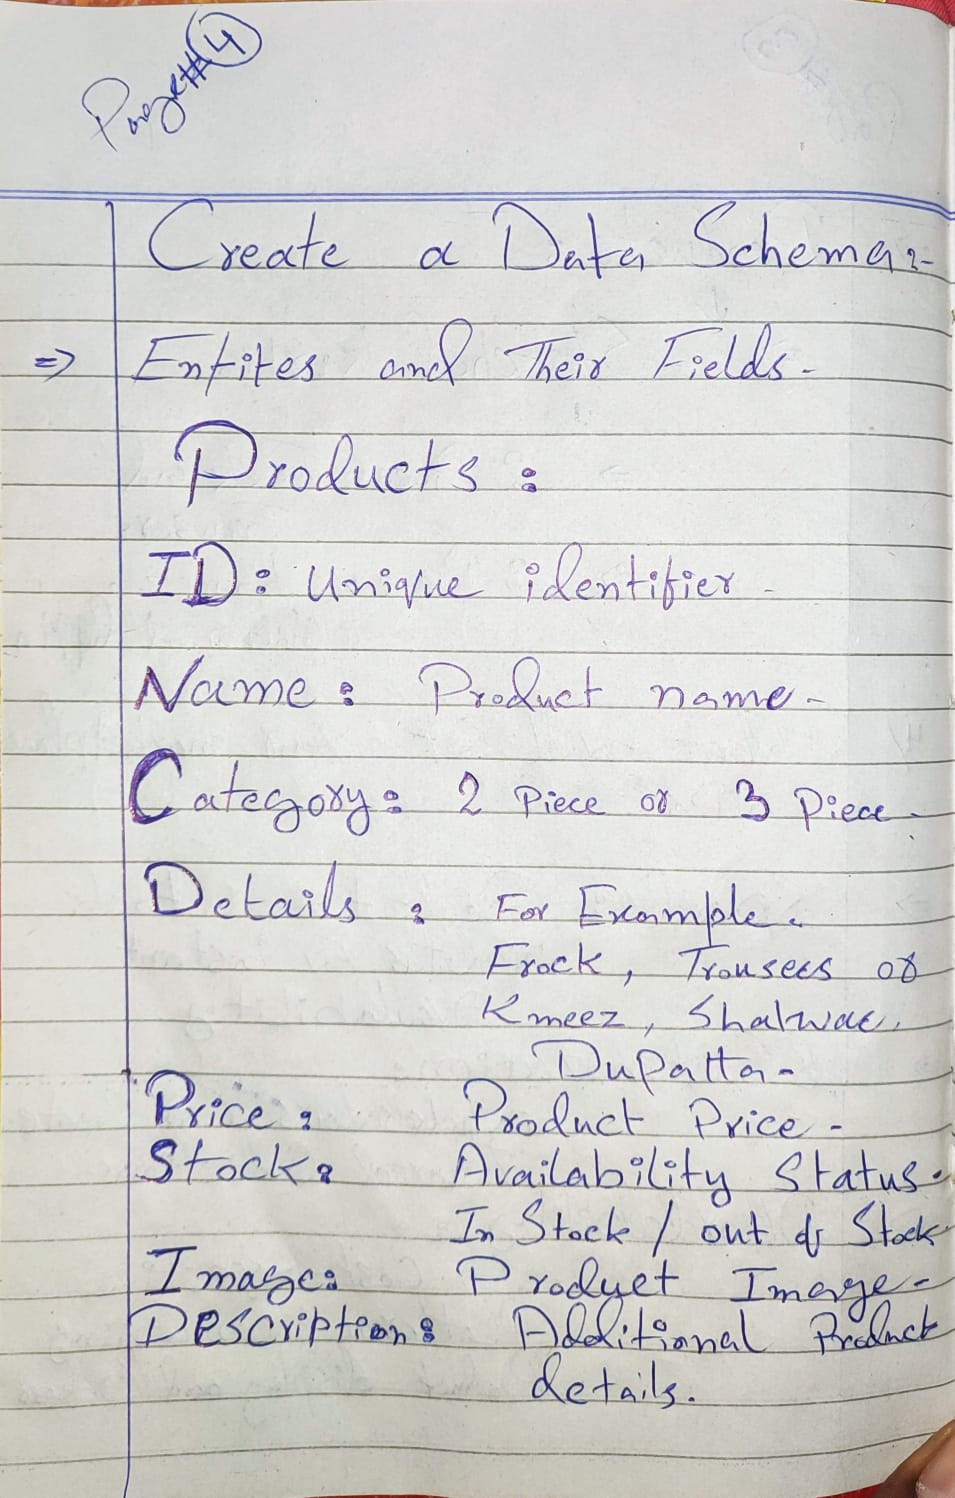 Page # 4
Create a Data Schema :-
=> Entites and Their Fields -
Products :
ID : Unique identifier -
Name : Product name -
Category : 2 Piece or 3 Piece .
Details : For Example .
Frock , Trousers or
Kmeez , Shalwar .
DuPatta -
Price : Product Price -
Stock : Availability Status .
In Stock / out of Stock
Image : Product Image -
Description : Additional Product
details .